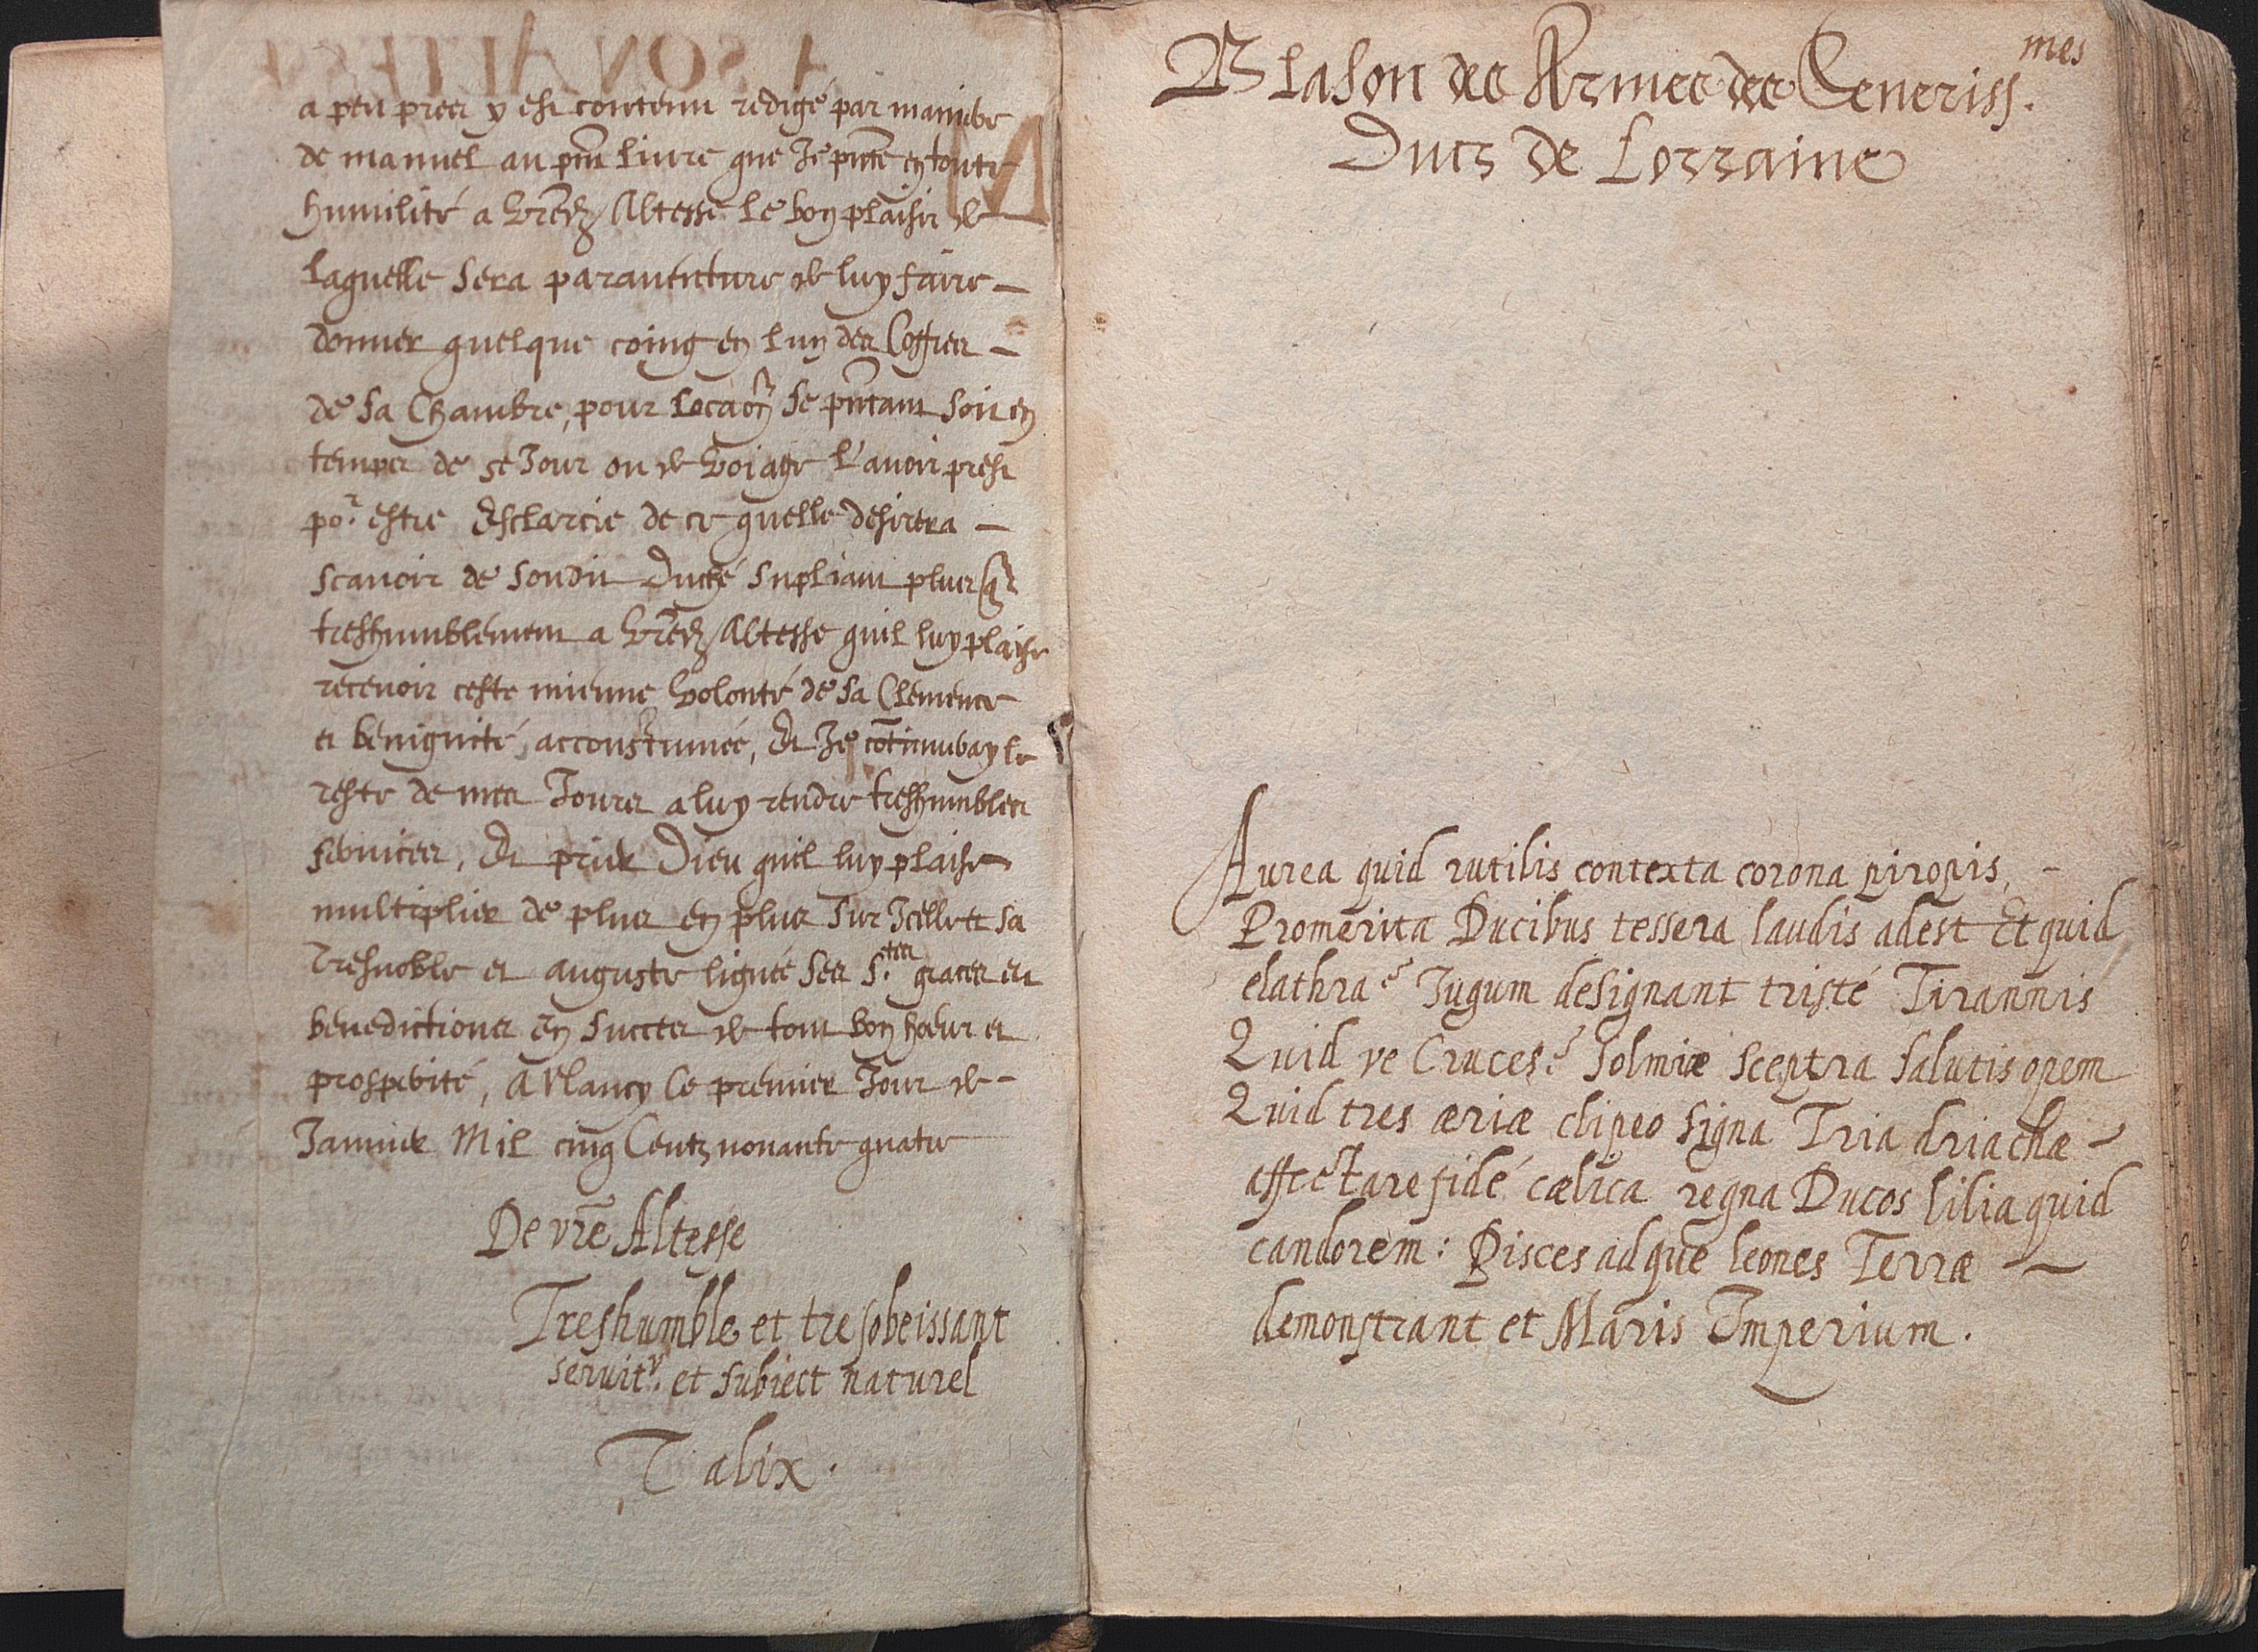 a peu pres y est contenu redigé par maniere
de manuel au pnt Liure que Je pnte en toute
humilité a vre dte Altesse le bon plaisir de
laquelle sera parauenture de luy faire
donner quelque coing en lun des Coffres
de sa Chambre, pour Loccaon se pntant soit en
temps de seJour ou de voiage L'auoir prest
por estre Esclarcie de ce quelle desirera
scauoir de sondit Duché supliant plus que
treshumblement a vre dte Altesse quil luy plaise
receuoir ceste mienne volonté de sa Clemence
et benignité accoustumée, Et Je cōtinueray le
reste de mes Jours a luy rendre treshumbles
seruices, Et prier Dieu quil luy plaise
multiplier de plus en plus sur Icelle et sa
tresnoble et auguste lignée ses S.tes graces et
benedictions en succes de tout bon heur et
prosperité, A Nancy le premier Jour de
Januier Mil cinq Centz nonante quatre
De vre Altesse
Treshumble et tresobeissant
seruitr. et subiect naturel
T alix.
Blason des Armes des Sereniss.mes
Ducz de Lorraine
Aurea quid rutilis contexta corona piropis,
Promerita Ducibus tessera laudis adest Et quid
elathrae Jugum designant tristé Tirannis
Quid ve Cruces? Solmiæ sceptra salutis opem
Quid tres æriæ clipeo signa Tria driachæ
affectare fidé cælica regna Ducos lilia quid
candorem: Pisces adque leones Terræ
demonstrant et Maris Imperium.